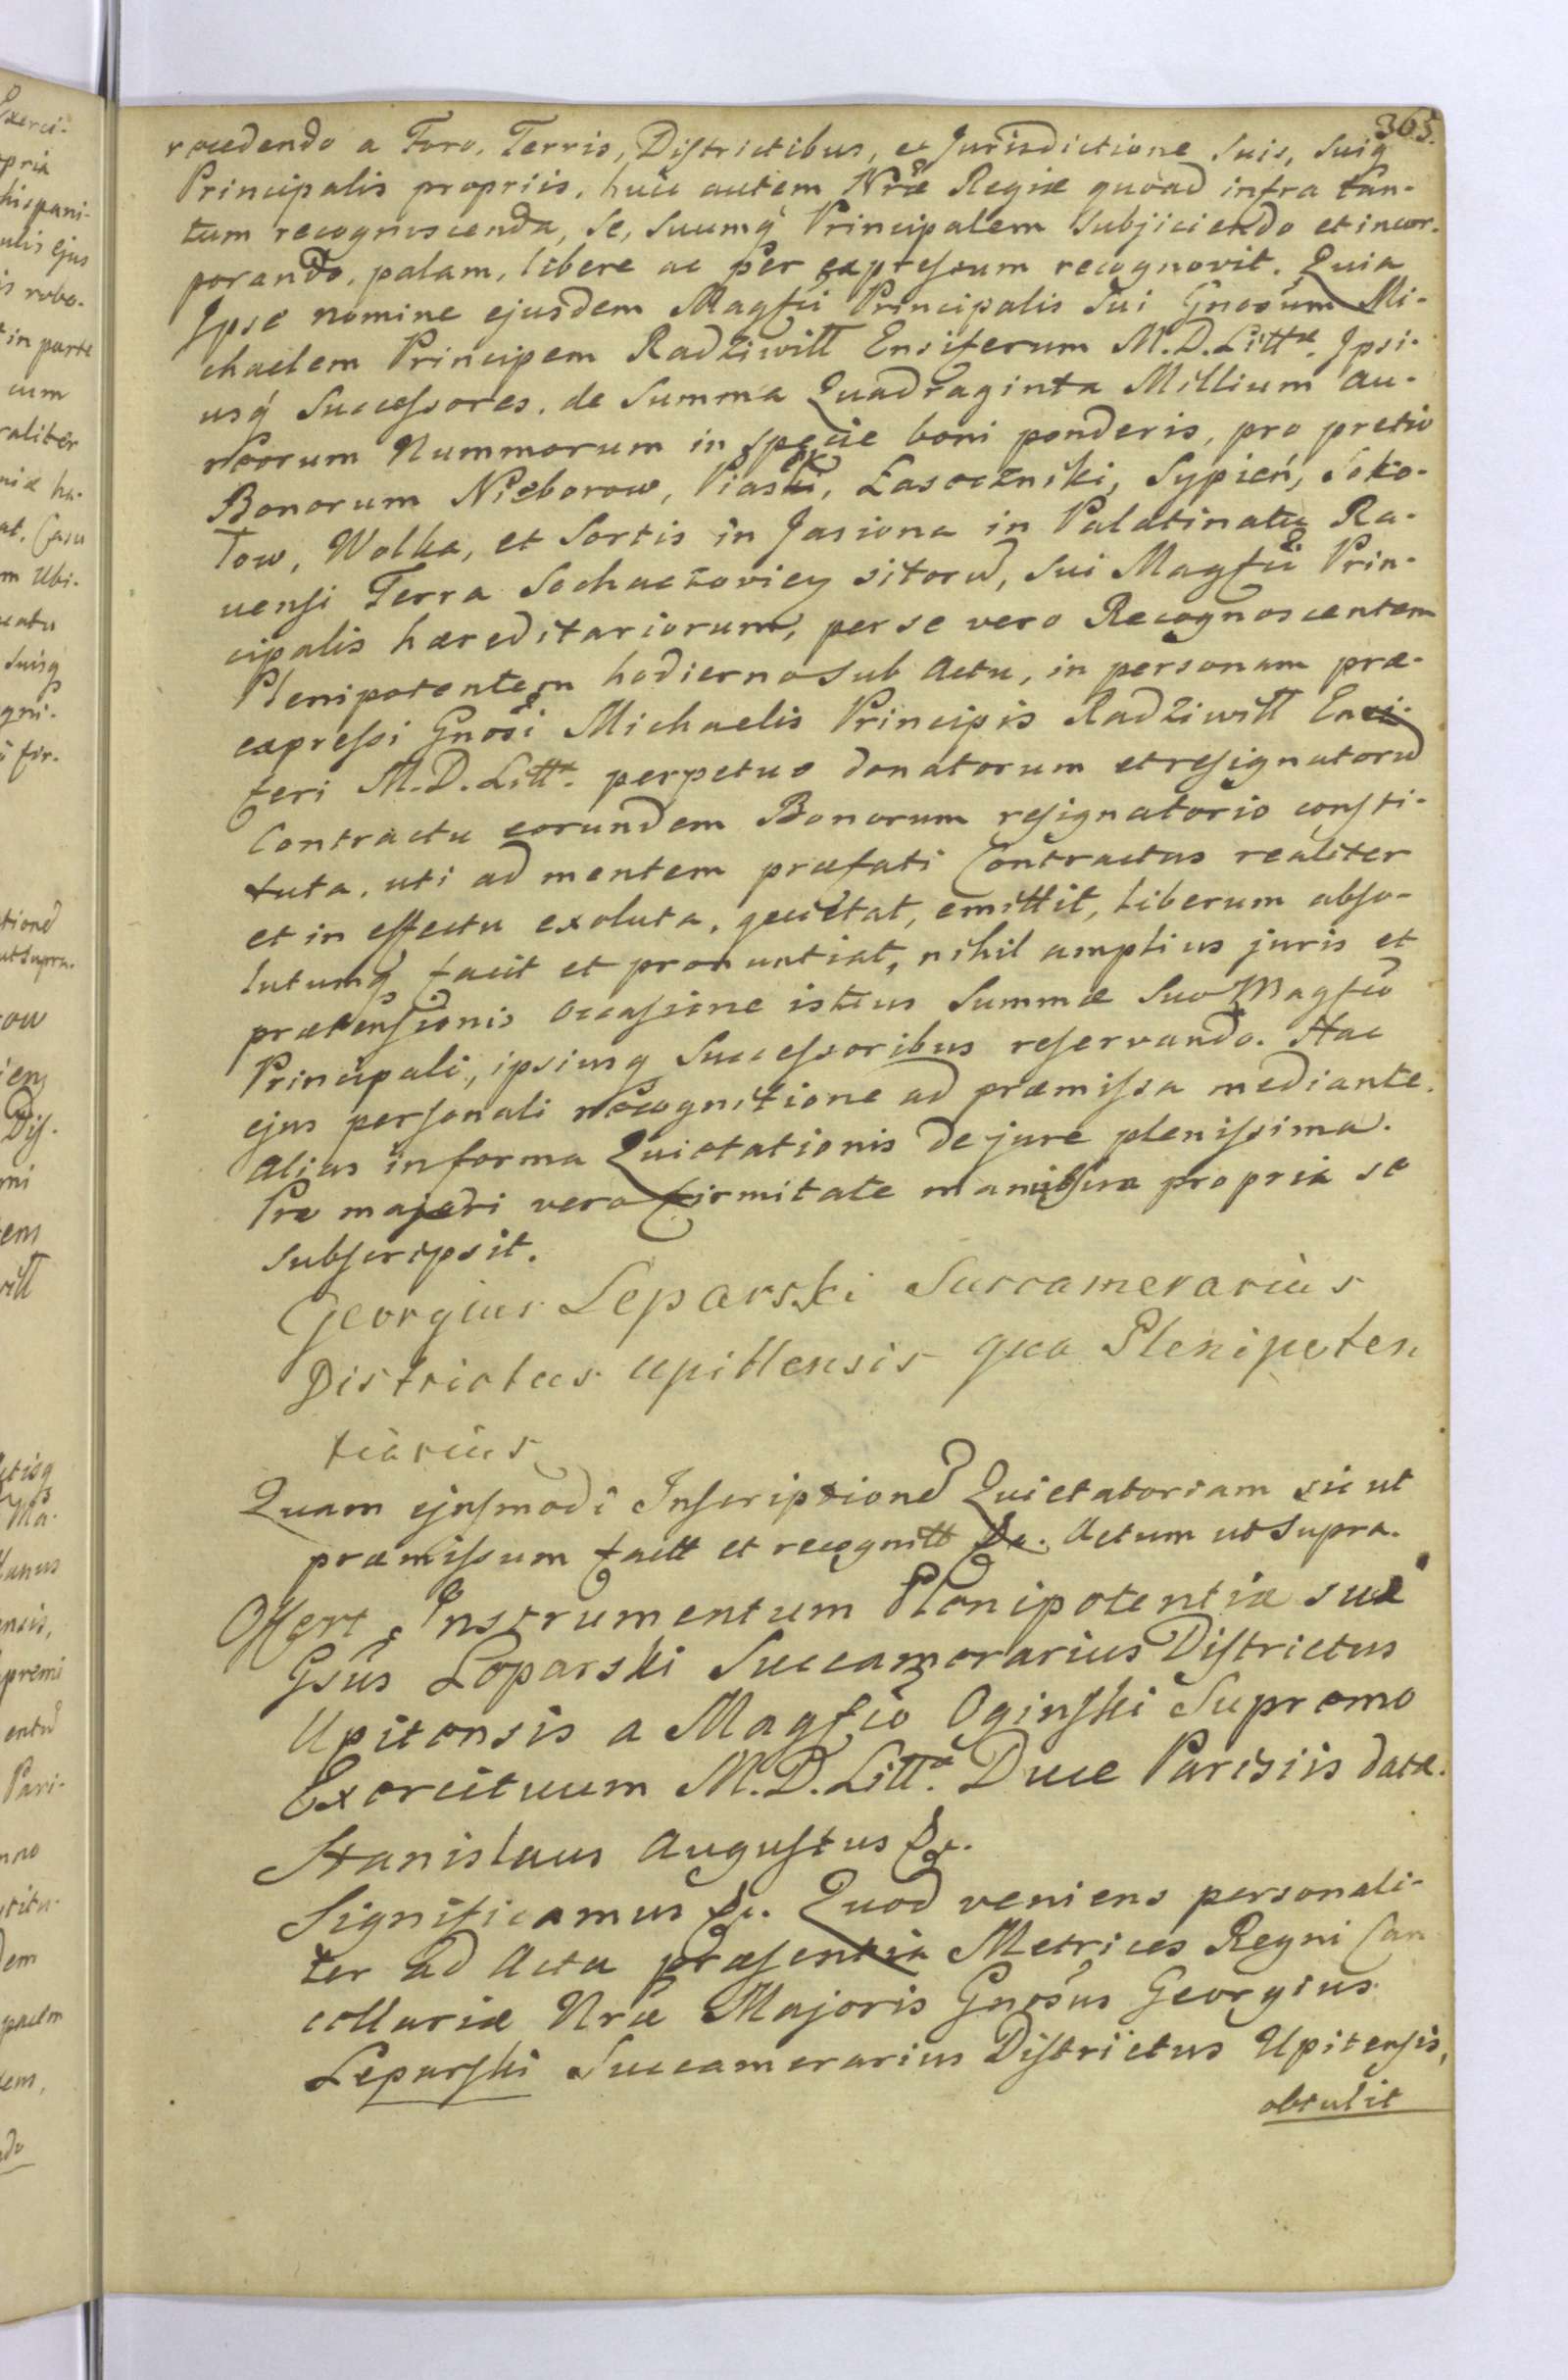 365.
recedendo a Foro, Terris, Districtibus, et Jurisdictione suis, suiq́
Principalis propriis, huic autem Nrae Regiae quoad infra tan-
tum recognoscenda, se, suumq́ Principalem subjiciendo et incor-
porando, palam, libere ac per expressum recognovit. Quia
Ipse nomine ejusdem Magfci Principalis sui Gnosum Mi-
chaelem Principem Radziwiłł Ensiferum M.D.Littae. Ipsi-
usq́ Successores, de Summa Quadraginta Millium au-
reorum Nummorum in specie boni ponderis, pro pretio
Bonorum Nieborow, Piaski, Łasoczniki, Sypień, Soko-
łow, Wolka, et Sortis in Jasiona in Palatinatu Ra-
vensi Terra Sochaczoviey sitorũ, sui Magfci Prin-
cipalis haereditariorum, per se vero Recognoscentem
Plenipotentem hodierno sub Actu, in personam prae-
expressi Gnosi Michaelis Principis Radziwiłł Ensi-
feri M.D.Littae. perpetuo donatorum et resignatorũ
Contractu eorundem Bonorum resignatorio consti-
tuta, uti ad mentem praefati Contractus realiter
et in effectu exoluta, quietat, emittit, liberum abso-
lutumq́ facit et pronuntiat, nihil amplius juris et
praetensionis occasione istius Summae suo Magfco
Principali, ipsiusq Successoribus reservando. Hac
ejus personali recognitione ad praemissa mediante.
Alias in forma Quietationis de jure plenissima.
Pro majori vero firmitate manu sua propria se
subscripsit.
Georgius Leparski Succamerarius
Districtus Upittensis qua Plenipoten
tiarius
Quam ejusmodi Inscriptionẽ Quietatoriam sicut
praemissum factt et recognitt &c. Actum ut supra.
Offert Instrumentum Plenipotentiae suae
Gsus Leparski Succamerarius Districtus
Upitensis a Magfco Oginski Supremo
Exercituum M.D.Littae. Duce Parisiis datae.
Stanislaus Augustus &c.
Significamus &c. Quod veniens personali-
ter ad Acta praesentia Metrices Regni Can
cellariae Nrae Majoris Gnosus Georgius
Leparski Succamerarius Districtus Upitensis,
obtulit